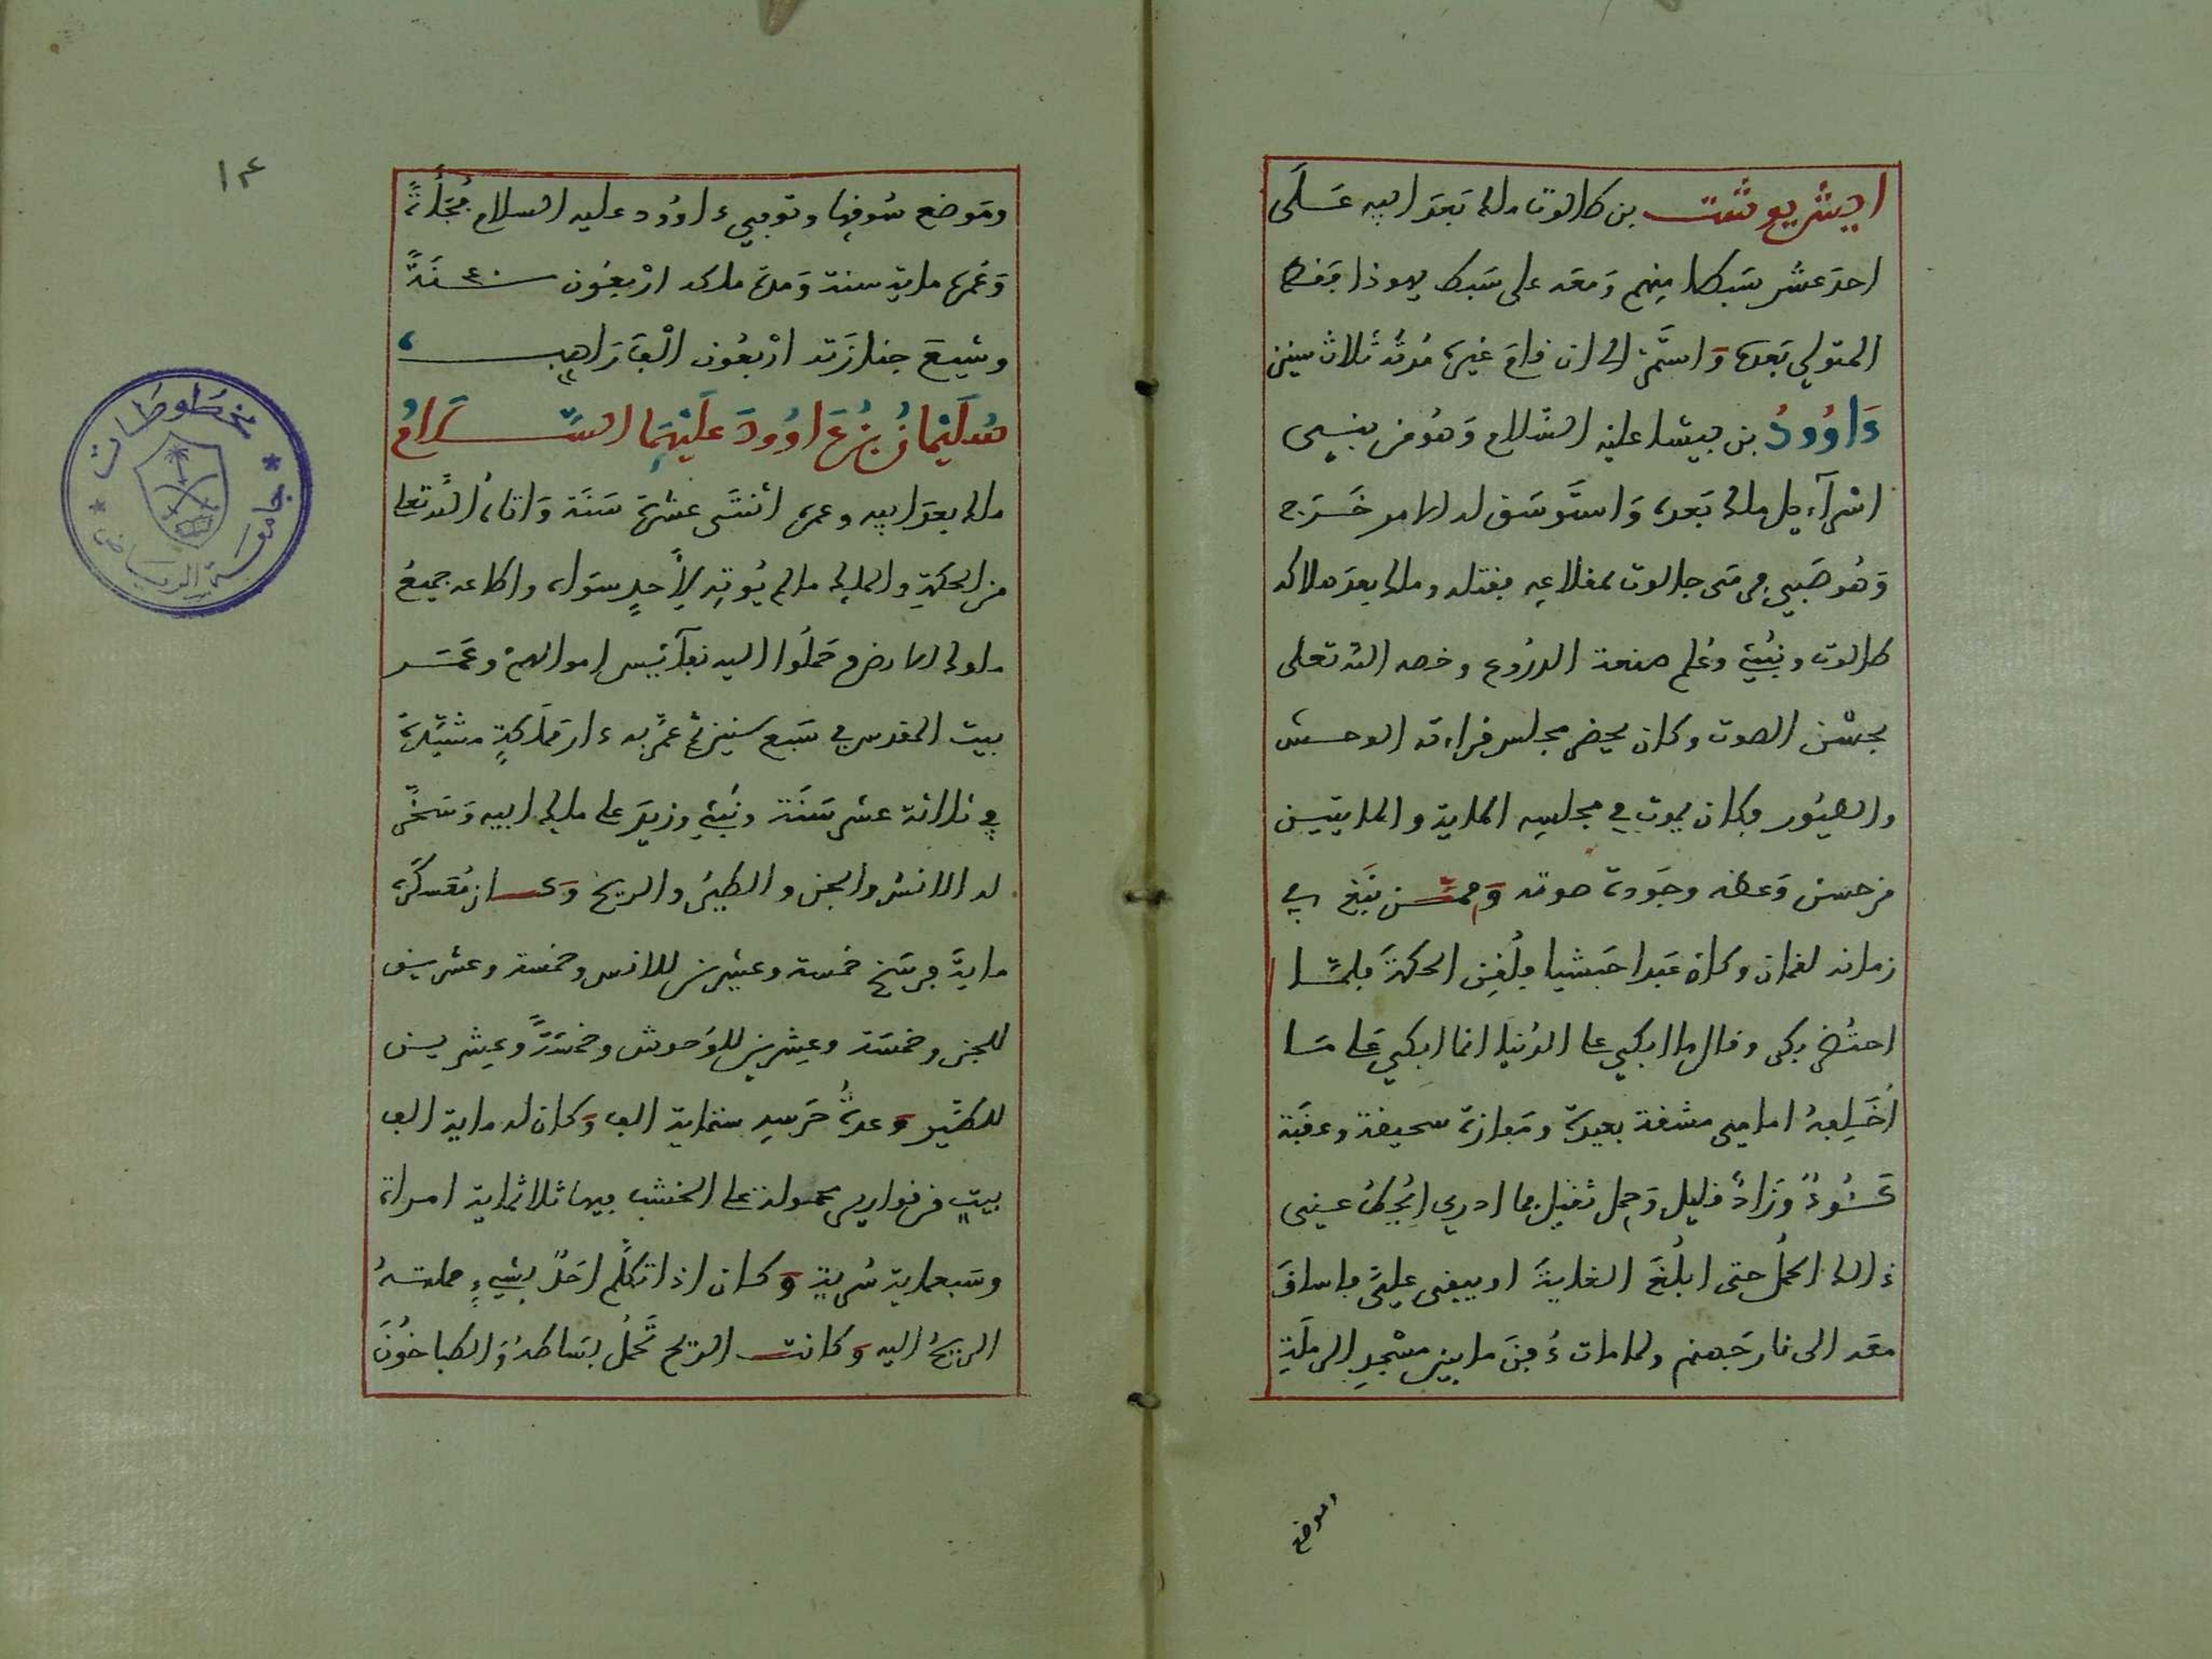 ايشريوشت بن طالوت ملك بَعدَ ابيه عَلَى
احدَ عشر سَبطا منهم وَمعَه على سَبط يهوذا وَهو
المتولي بَعدَه وَاستَمَر الى ان قامَ غيره مُدتُه ثلاث سنين
دَاوُودُ بن بيشا عليه السَّلام وَهوُ من بنِى
اسْرآءيل ملك بَعده وَاستَوسَق له الامر خَرَج
وَهُو صَبي فرمَى جالوت بمقلاعِه فقتله وملك بعدَ هلاك
طالوت ونُبِّئَ وعُلم صنعة الدرُوع وخصه الله تعلى
بحسْن الصوت وكان يحضر مجلس قراءته الوحش
والطيُور وكان يموت في مجلسِه الماية والمايتين
من حسن وَعظه وجَودة صوته وَممن نبَغ في
زمانه لقمان وكان عَبدا حَبشيا فلُقِّن الحكمَة فلما
احتُضر بكى وقال ما ابكي على الدُنيا انما ابكي عَلى مَا
اُخَلِفهُ امامِى مشقة بعيدة ومَفازة سحيقة وعقبَة
كَـئُودٌ وَزَادٌ قليل وَحِمل ثقيل فما ادري ايُحِطُ عنِى
ذالك الحمْل حتى ابلُغَ الغايةَ او يبقى عليَّ فاساقَ
معَه الى نار جَهنم ولما مات دُفنَ ما بين مسْجدِ الرملَةِ
وموضع
١٤
ومَوضع سُوقِها وتوفي داوُود عليه السلام فَجأَةً
وَعُمره ماية سنة وَمدة ملكه ارْبعُون سنَةً
وشيعَ جنازَته ارْبعُون الْفَ رَاهِب
سُلَيْمانُ بنُ دَاوُودَ عَلَيْهِمَا السَّــلامُ
ملك بعدَ ابيه وعمره اثنتَى عشرَة سَنَة وَاتاهُ الله تعلى
من الحكمَةِ والملك ما لم يُوتِه لأَحدٍ سوَاه واطاعه جميعُ
ملوك الارض وحَملُوا اليه نفَآئِس اموالهمْ وعَمَّر
بيت المقدس في سَبع سنين ثم عمَّر به دار مَملَكةٍ مشيَّدةً
في ثلاثة عشر سَنَة ونُبئ وزيدَ على ملك ابيه وَسخَّر
له الانس والجن والطيْر والريح وَكـان مُعَسكَره
مايةَ فرسَخ خمسة وعشرين للانس وخمسة وعشرين
للجن وخمسَة وعِشرين للوُحوش وخمسَةً وعِشرين
للطَّير وَعدةُ حَرسه ستماية الف وَكان له ماية الف
بيتٍ من قوارير محمولة على الخشب فيها ثلاثماية امراة
وسَبعماية سُرية وَكان اذا تكلَّم احَدٌ بشيءٍ حملتـهُ
الريحُ اليه وَكانت الريح تَحمُل بسَاطهُ وَالطباخُونَ
مخطوطات
جامعة الرياض